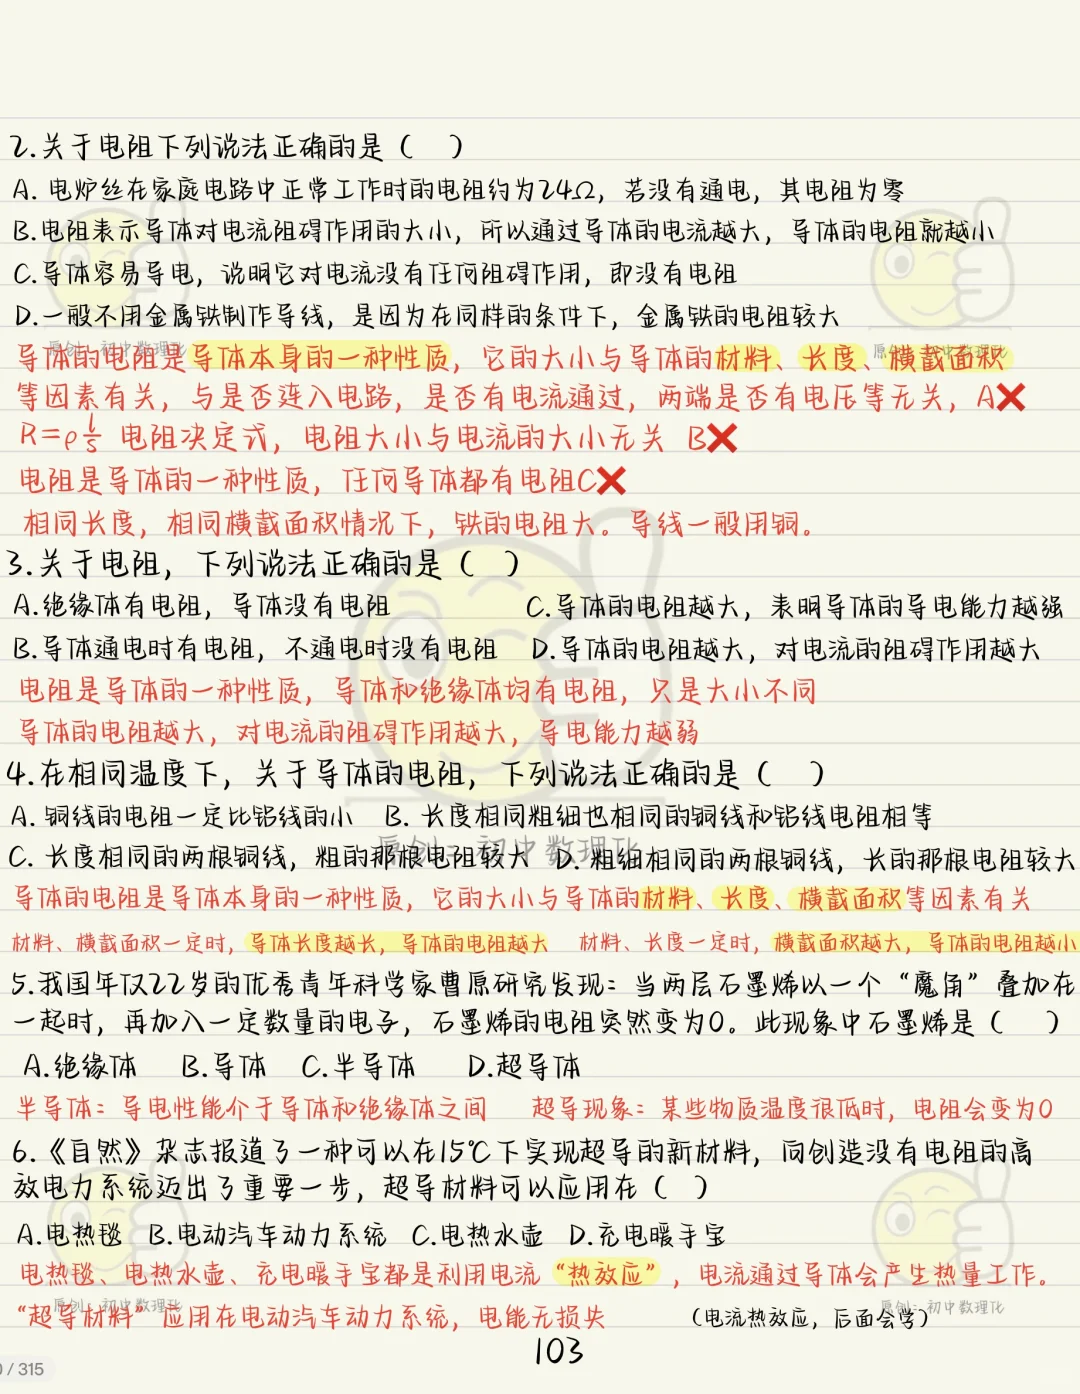 2.关于电阻下列说法正确的是（ ）
A. 电炉丝在家庭电路中正常工作时的电阻约为24Ω，若没有通电，其电阻为零
B.电阻表示导体对电流阻碍作用的大小，所以通过导体的电流越大，导体的电阻就越小
C.导体容易导电，说明它对电流没有任何阻碍作用，即没有电阻
D.一般不用金属铁制作导线，是因为在同样的条件下，金属铁的电阻较大
原创：初中数理化
原创：初中数理化
导体的电阻是导体本身的一种性质，它的大小与导体的材料、长度、横截面积
等因素有关，与是否连入电路，是否有电流通过，两端是否有电压等无关，A❌
R=ρl/s 电阻决定式，电阻大小与电流的大小无关 B❌
电阻是导体的一种性质，任何导体都有电阻C❌
相同长度，相同横截面积情况下，铁的电阻大。导线一般用铜。
3.关于电阻，下列说法正确的是（ ）
A.绝缘体有电阻，导体没有电阻 C.导体的电阻越大，表明导体的导电能力越强
B.导体通电时有电阻，不通电时没有电阻 D.导体的电阻越大，对电流的阻碍作用越大
电阻是导体的一种性质，导体和绝缘体均有电阻，只是大小不同
导体的电阻越大，对电流的阻碍作用越大，导电能力越弱
4.在相同温度下，关于导体的电阻，下列说法正确的是（ ）
A. 铜线的电阻一定比铝线的小 B. 长度相同粗细也相同的铜线和铝线电阻相等
原创：初中数理化
C. 长度相同的两根铜线，粗的那根电阻较大 D. 粗细相同的两根铜线，长的那根电阻较大
导体的电阻是导体本身的一种性质，它的大小与导体的材料、长度、横截面积等因素有关
材料、横截面积一定时，导体长度越长，导体的电阻越大 材料、长度一定时，横截面积越大，导体的电阻越小
5.我国年仅22岁的优秀青年科学家曹原研究发现：当两层石墨烯以一个“魔角”叠加在
一起时，再加入一定数量的电子，石墨烯的电阻突然变为0。此现象中石墨烯是（ ）
A.绝缘体 B.导体 C.半导体 D.超导体
半导体：导电性能介于导体和绝缘体之间 超导现象：某些物质温度很低时，电阻会变为0
6.《自然》杂志报道了一种可以在15℃下实现超导的新材料，向创造没有电阻的高
效电力系统迈出了重要一步，超导材料可以应用在（ ）
A.电热毯 B.电动汽车动力系统 C.电热水壶 D.充电暖手宝
电热毯、电热水壶、充电暖手宝都是利用电流“热效应”，电流通过导体会产生热量工作。
原创：初中数理化
原创：初中数理化
“超导材料”应用在电动汽车动力系统，电能无损失 （电流热效应，后面会学）
103
0 / 315